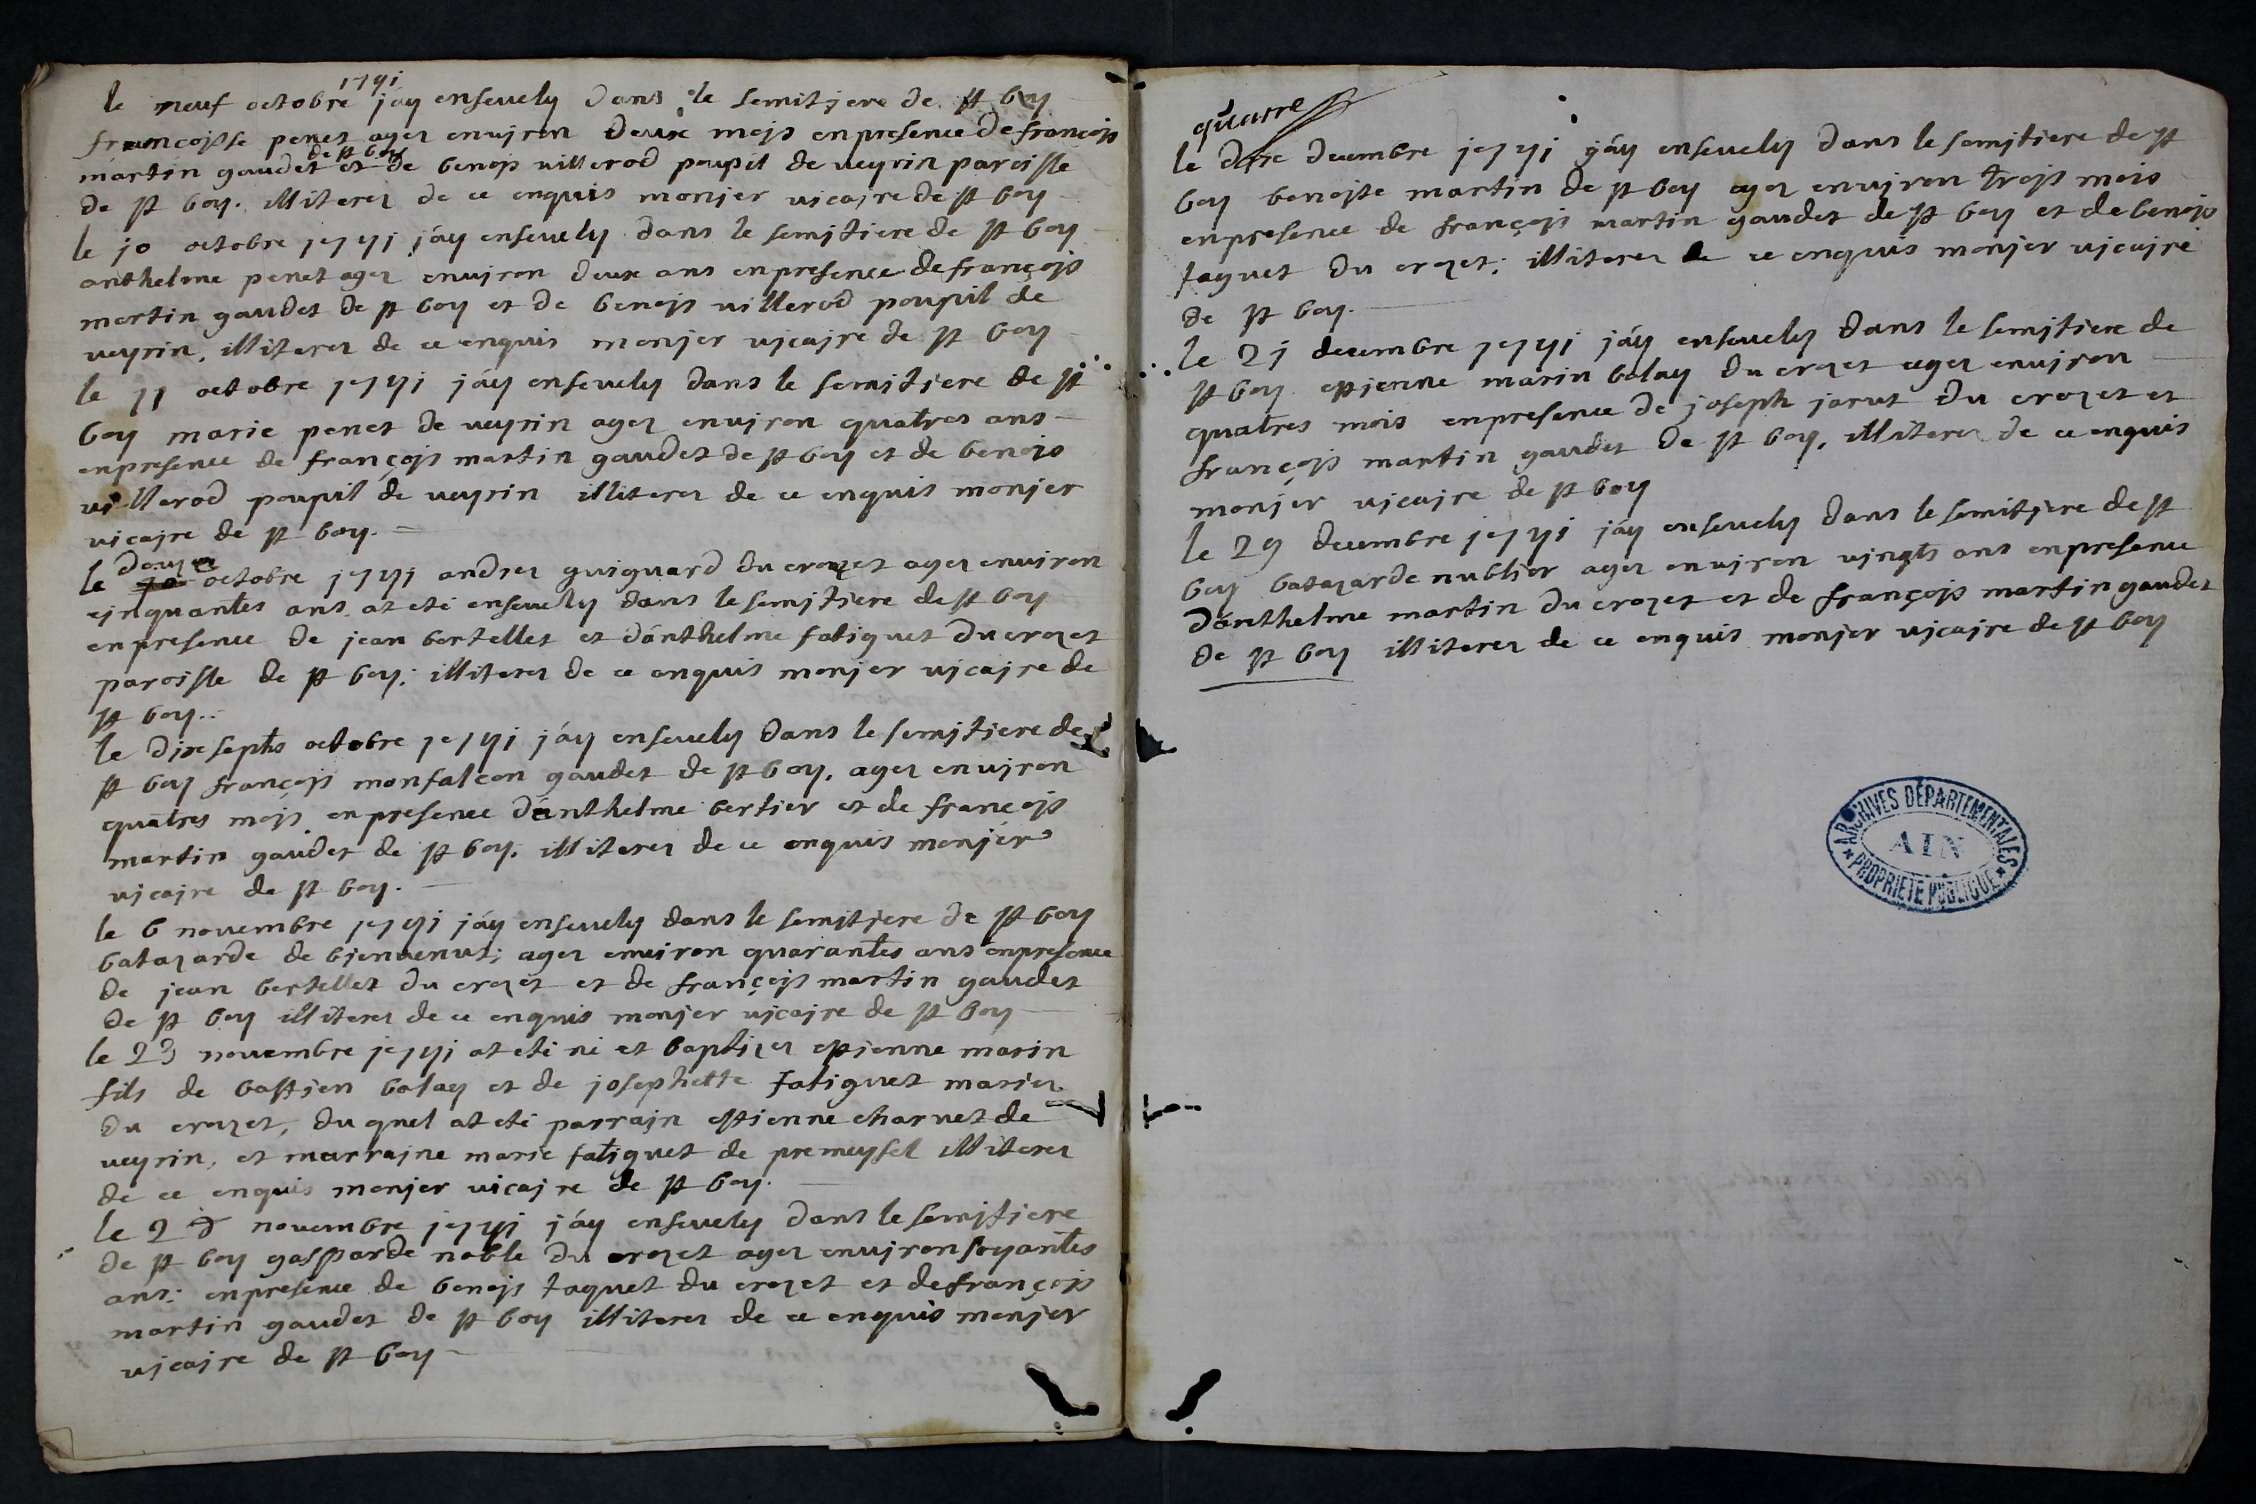 1791
le neuf octobre jáy ensevely dans le semitjere de st boy
francoisse penet agez envjron deux mojs enpresence de françojs
martin gaudet de st boy et de benojs villerod poupil de veyrin paroisse
de st boy. illiterez de ce enquis monjer vicajre de st boy
le jo octobre jc7yj jáy ensevely dans le semjtiere de st boy
anthelme penet agez envjron deux ans enpresence de françojs
martin gaudet de st boy et de benojs villerod poupil de
veyrin, illiterez de ce enquis monjer vjcajre de st boy
le 11 octobre jc7yj jáy ensevely dans le semjtjere de st
boy marie penet de veyrin agez envjron quatres ans
enpresence de françojs martin gaudet de st boy et de benojs
villerod poupil de veyrin illiterez de ce enquis monjer
vicajre de st boy.
le douze octobre jc7yj andrez guiguard du crozet agez environ
cjnquantes ans at eté ensevely dans le semjtiere de st boy
enpresence de jean bertellet et dánthelme fatiguet du crozet
paroisse de st boy; illiterez de ce enquis monjer vjcajre de
st boy..
le djx septs octobre jc7yj jáy ensevely dans le semjtjere de
st boy françojs monfalcon gaudet de st boy, agez envjron
quatres mojs enpresence dánthelme bertier et de françojs
martin gaudet de st boy. illiterez de ce enquis monjer
vjcajre de st boy.
le 6 novembre jc7yj jáy ensevely dans le semjtjere de st boy
batazarde de bjenvenut; agez environ quarantes ans enpresence
de jean bertellet du crozet et de françojs martin gaudet
de st boy illiterez de ce enquis monjer vjcajre de st boy
le 23 novembre jc7yj at eté né et baptizez estjenne marin
fils de bastjen balay et de josephette fatiguet mariez
du crozet, du quel at eté parrajn estjenne charvet de
veyrin, et marrajne marie fatiguet de premeysel illiterez
de ce enquis monjer vicajre de st boy.
le 28 novembre jc7yj jáy ensevely dans le semjtjere
de st boy gasparde noble du crozet agez envjron soyantes
ans; enpresence de benojs taquet du crozet et de françojs
martin gaudet de st boy illiterez de ce enquis monjer
vjcajre de st boy
quarre
le dixe decembre jc7yj jáy ensevely dans le semjtiere de st
boy benojte martin de st boy agez envjron trojs mois
enpresence de françojs martin gaudet de st boy et de benojs
taquet du crozet; illiterez de ce enquis monjer vjcajre
de st boy.
le 2j decembre jc7yj jáy ensevely dans le semjtiere de
st boy estjenne marin balay du crozet agez envjron
quatres mois enpresence de joseph jarut du crozet et
françojs martin gaudet de st boy, illiterez de ce enquis
monjer vjcajre de st boy
le 29 decembre jc7yj jáy ensevely dans le semitjere de st
boy batazarde nublier agez envjron vjngts ans enpresence
dánthelme martin du crozet et de françojs martin gaudet
de st boy illiterez de ce enquis monjer vjcajre de st boy
ARCHIVES DÉPARTEMENTALES
AIN
PROPRIÉTÉ PUBLIQUE